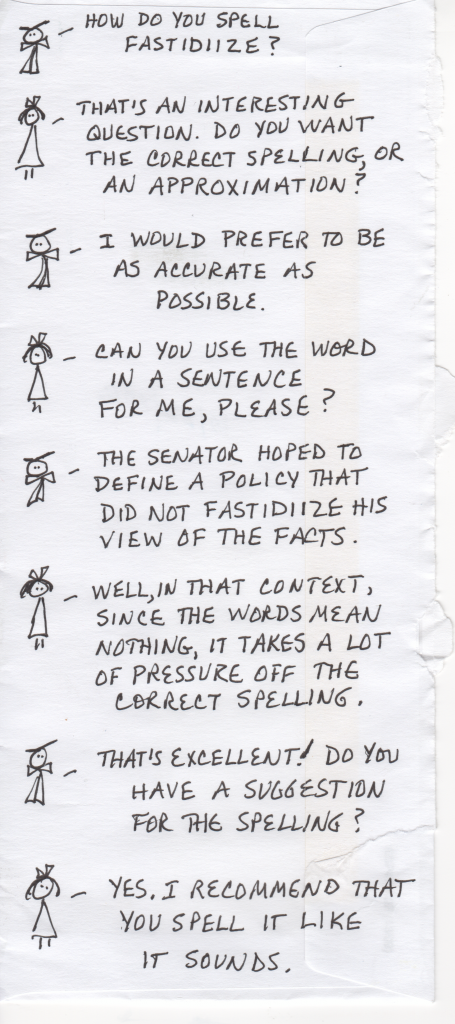 HOW DO YOU SPELL
FASTIDIIZE?
THAT'S AN INTERESTING
QUESTION. DO YOU WANT
THE CORRECT SPELLING, OR
AN APPROXIMATION?
I WOULD PREFER TO BE
AS ACCURATE AS
POSSIBLE.
CAN YOU USE THE WORD
IN A SENTENCE
FOR ME, PLEASE?
THE SENATOR HOPED TO
DEFINE A POLICY THAT
DID NOT FASTIDIIZE HIS
VIEW OF THE FACTS.
WELL, IN THAT CONTEXT,
SINCE THE WORDS MEAN
NOTHING, IT TAKES A LOT
OF PRESSURE OFF THE
CORRECT SPELLING.
THAT'S EXCELLENT! DO YOU
HAVE A SUGGESTION
FOR THE SPELLING?
YES. I RECOMMEND THAT
YOU SPELL IT LIKE
IT SOUNDS.